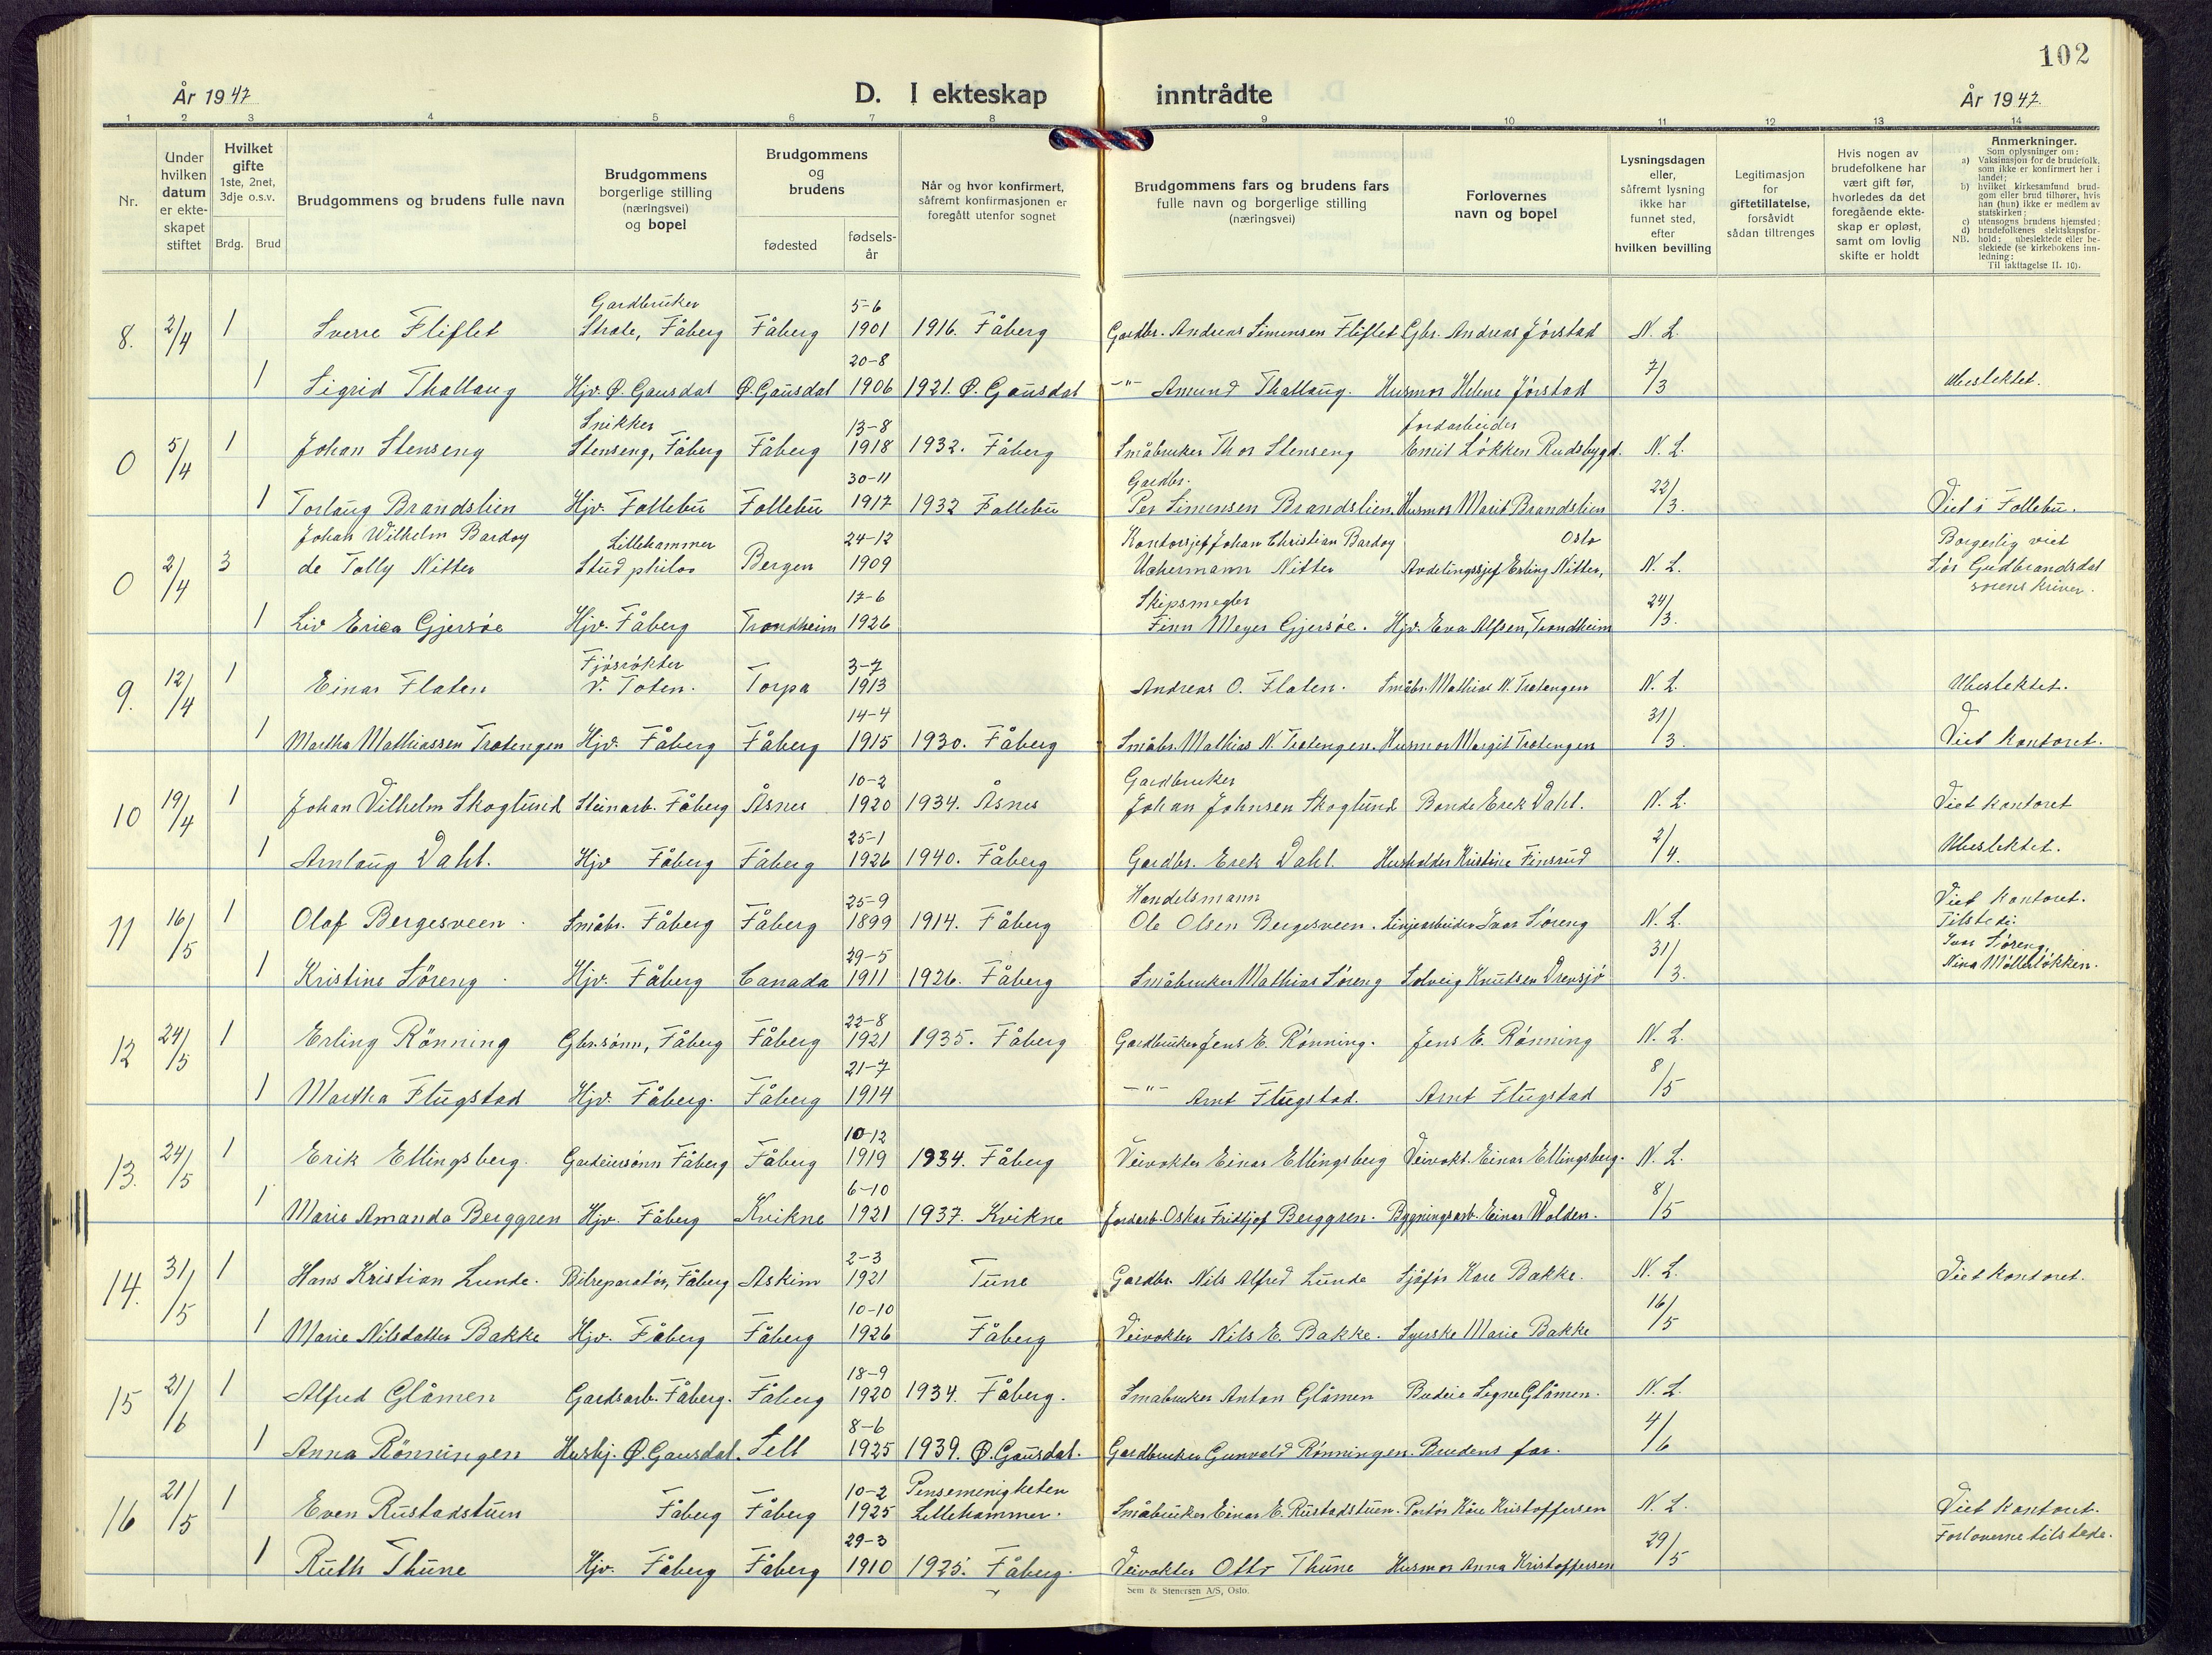 102
År 1947
D. I ekteskap inntrådte
År 1947.
1 2 3 4 5 6 7 8 9 10 11 12 13 14
Nr.
Under hvilken datum er ekteskapet stiftet
Hvilket gifte 1ste, 2net, 3dje o.s.v.
Brdg. Brud
Brudgommens og brudens fulle navn
Brudgommens borgerlige stilling (næringsvei) og bopel
Brudgommens og brudens
fødested
fødselsår
Når og hvor konfirmert, såfremt konfirmasjonen er foregått utenfor sognet
Brudgommens fars og brudens fars fulle navn og borgerlige stilling (næringsvei)
Forlovernes navn og bopel
Lysningsdagen eller, såfremt lysning ikke har funnet sted, efter hvilken bevilling
Legitimasjon for giftetillatelse, forsåvidt sådan tiltrenges
Hvis nogen av brudefolkene har vært gift før, hvorledes da det foregående ekteskap er opløst, samt om lovlig skifte er holdt
Anmerkninger.
Som oplysninger om:
a) Vaksinasjon for de brudefolk, som ikke er konfirmert her i landet;
b) hvilket kirkesamfund brudgom eller brud tilhører, hvis han (hun) ikke er medlem av statskirken;
c) utensogns brudens hjemsted;
d) brudefolkenes slektskapsforhold: ubeslektede eller beslektede (se kirkebokens innledning:
NB.
Til iakttagelse II. 10).
Gardbruker 5-6
8. 2/4 1 Sverre Fliflet Strate, Fåberg Fåberg 1901 1916. Fåberg Gardbr. Andreas Simensen Fliflet Gbr. Andreas Jørstad N. L.
20-8
1 Sigrid Thallaug Hjv. Ø. Gausdal Ø. Gausdal 1906 1921. Ø. Gausdal -"- Amund Thallaug. Husmor Helene Jørstad 7/3 Ubeslektet.
Snikker 13-8 Jordarbeider
0 5/4 1 Johan Stenseng Stenseng, Fåberg Fåberg 1918 1932. Fåberg Småbruker Thor Stenseng Emil Løkken Rudsbygd. N. L.
30-11 Gardbr.
1 Torlaug Brandslien Hjv. Follebu Follebu 1917 1932 Follebu Per Simensen Brandslien. Husmor Marit Brandslien 22/3. Viet i Follebu.
Johan Wilhelm Bardoy Lillehammer 24-12 Kontorsjef Johan Christian Bardoy Oslo Borgerlig viet
0 2/4 3 de Tolly Nitter Stud philos Bergen 1909 Uchermann Nitter Avdelingssjef Erling Nitter, N. L. Sør Gudbrandsdal
sorenskriver.
17-6 Skipsmegler
1 Liv Erica Gjersøe Hjv. Fåberg Trondheim 1926 Finn Meyer Gjersøe. Hjv. Eva Alfsen, Trondheim 24/3.
Fjøsrøkter 3-7
9. 12/4 1 Einar Flaten V. Toten. Torpa 1913 Andreas O. Flaten. Småbr. Mathias N. Trotengen N. L. Ubeslektet.
14-4
1 Martha Mathiassen Trotengen Hjv. Fåberg Fåberg 1915 1930. Fåberg Småbr. Mathias N. Trotengen. Husmor Margit Trotengen 31/3. Viet kontoret.
10-2 Gardbruker
10 19/4 1 Johan Vilhelm Skoglund Steinarb. Fåberg Åsnes 1920 1934. Åsnes Johan Johnsen Skoglund Bonde Erek Dahl. N. L. Viet kontoret
25-1
1 Arnlaug Dahl. Hjv Fåberg Fåberg 1926 1940. Fåberg Gardbr. Erek Dahl. Husholder Kristine Finsrud 2/4. Ubeslektet.
25-9 Handelsmann Viet kontoret.
11 16/5 1 Olaf Bergesveen. Småbr. Fåberg Fåberg 1899 1914. Fåberg Ole Olsen Bergesveen. Linjearbeider Ivar Søreng N. L. Tilstede:
29-5 Ivar Søreng,
1 Kristine Søreng. Hjv. Fåberg Canada 1911 1926. Fåberg Småbruker Mathias Søreng Solveig Knutsen Drevsjø 31/3. Nina Mølleløkken.
22-8
12 24/5 1 Erling Rønning Gbr.sønn, Fåberg Fåberg 1921 1935. Fåberg Gardbruker Jens E. Rønning. Jens E. Rønning N. L.
21-7
1 Martha Flugstad Hjv. Fåberg. Fåberg 1914 -"- Arnt Flugstad. Arnt Flugstad 8/5
10-12
13. 24/5 1 Erik Ellingsberg. Gardeiersønn Fåberg Fåberg 1919 1934. Fåberg Veivokter Einar Ellingsberg Veivokt. Einar Ellingsberg. N. L.
6-10
1 Marie Amanda Berggren Hjv. Fåberg Kvikne 1921 1937. Kvikne Jordarb. Oskar Fridtjof Berggren. Bygningsarb. Einar Wolden. 8/5
2-3
14. 31/5 1 Hans Kristian Lunde. Bilreparatør, Fåberg Askim 1921 Tune Gardbr. Nils Alfred Lunde Sjåfør Kåre Bakke. N. L. Viet kontoret.
10-10
1 Marie Nilsdatter Bakke Hjv. Fåberg Fåberg 1926 Fåberg Veivokter Nils E. Bakke. Syerske Marie Bakke 16/5
18-9
15 21/6 1 Alfred Glåmen Gardsarb. Fåberg. Fåberg 1920 1934. Fåberg. Småbruker Anton Glåmen Budeie Signe Glåmen. N. L.
8-6
1 Anna Rønningen Hushj. Ø. Gausdal. Sell 1925 1939. Ø. Gausdal. Gardbruker Gunvald Rønningen. Brudens far. 4/6
10-2 Pinsemenigheten
16 21/5 1 Even Rustadstuen Fåberg Fåberg 1925 Lillehammer. Småbruker Einar E. Rustadstuen. Portør Kåre Kristoffersen N. L. Viet kontoret.
29-3 Forloverne tilstede.
1 Ruth Thune Hjv. Fåberg Fåberg 1910 1925. Fåberg. Veivokter Otto Thune Husmor Anna Kristoffersen 29/5
Sem & Stenersen A/S, Oslo.